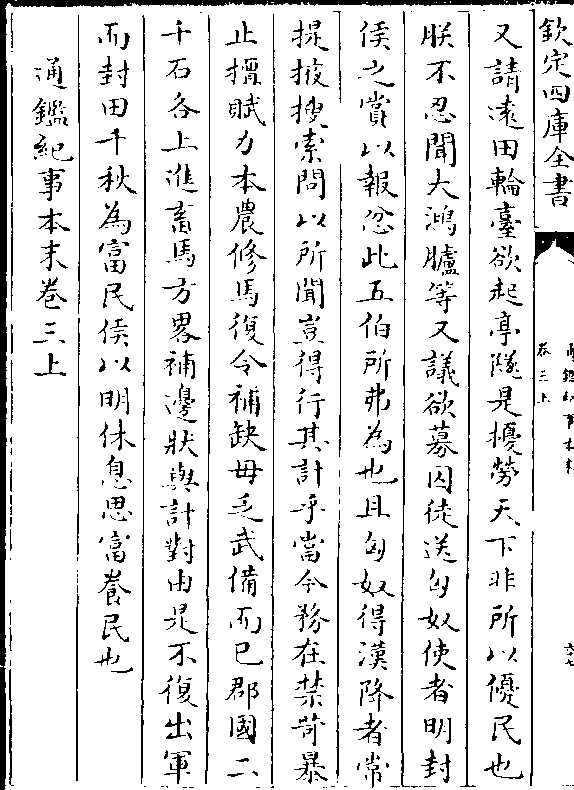 欽定四庫全書
通鑑紀事本末
卷三上
六七
又請遠田輪臺欲起亭隧是擾勞天下非所以優民也
朕不忍聞大鴻臚等又議欲募囚徒送匈奴使者明封
侯之賞以報忿此五伯所弗為也且匈奴得漢降者常
提掖搜索問以所聞豈得行其計乎當今務在禁苛暴
止擅賦力本農修馬復令補缺毋乏武備而已郡國二
千石各上進畜馬方畧補邊狀與計對由是不復出軍
而封田千秋為富民侯以明休息思富養民也
通鑑紀事本末卷三上